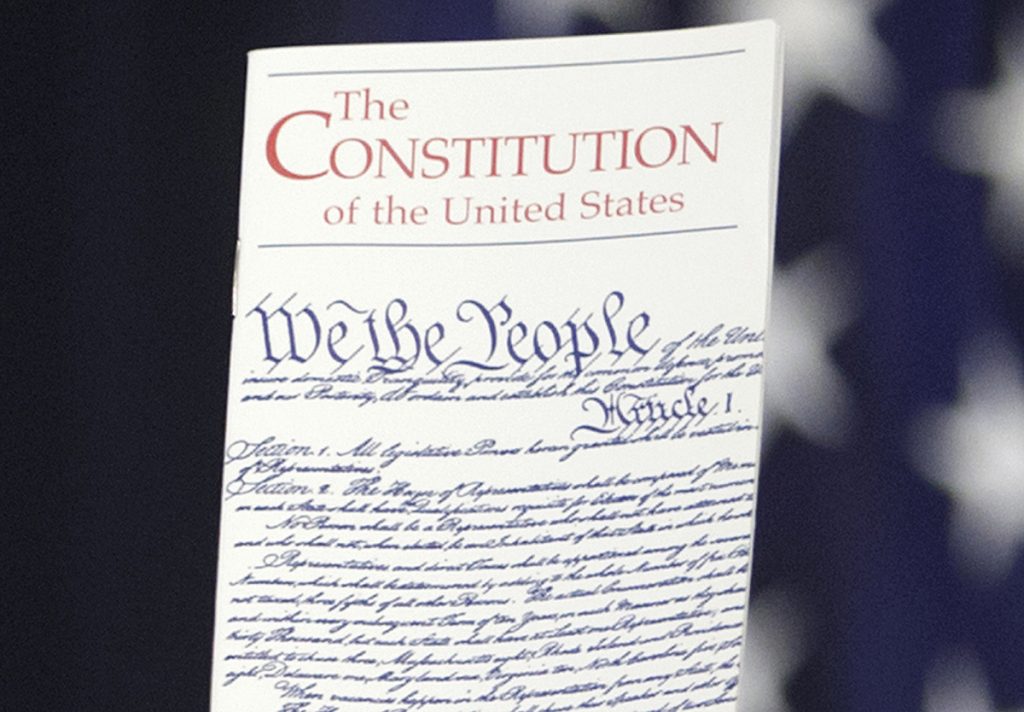 The
CONSTITUTION
of the United States
We the People of the Uni
insure domestic Tranquility, provide for the common defence, promo
and our Posterity, do ordain and establish this Constitution for the U
Article. I.
Section. 1. All legislative Powers herein granted shall be vested in
of Representatives.
Section. 2. The House of Representatives shall be composed of Mem
in each State shall have Qualifications requisite for Electors of the most numerous
No Person shall be a Representative who shall not have attained
and who shall not, when elected, be an Inhabitant of that State in which he
Representatives and direct Taxes shall be apportioned among the severa
Numbers, which shall be determined by adding to the whole Number of free
not taxed, three fifths of all other Persons. The actual Enumeration shall be
and within every subsequent Term of ten Years, in such Manner as they
thirty Thousand, but each State shall have at Least one Representative; and
entitled to chuse three, Massachusetts eight, Rhode Island and Providence
eight, Delaware one, Maryland six, Virginia ten, North Carolina five
When vacancies happen in the Representation from any State, the
shall chuse their Speaker and other